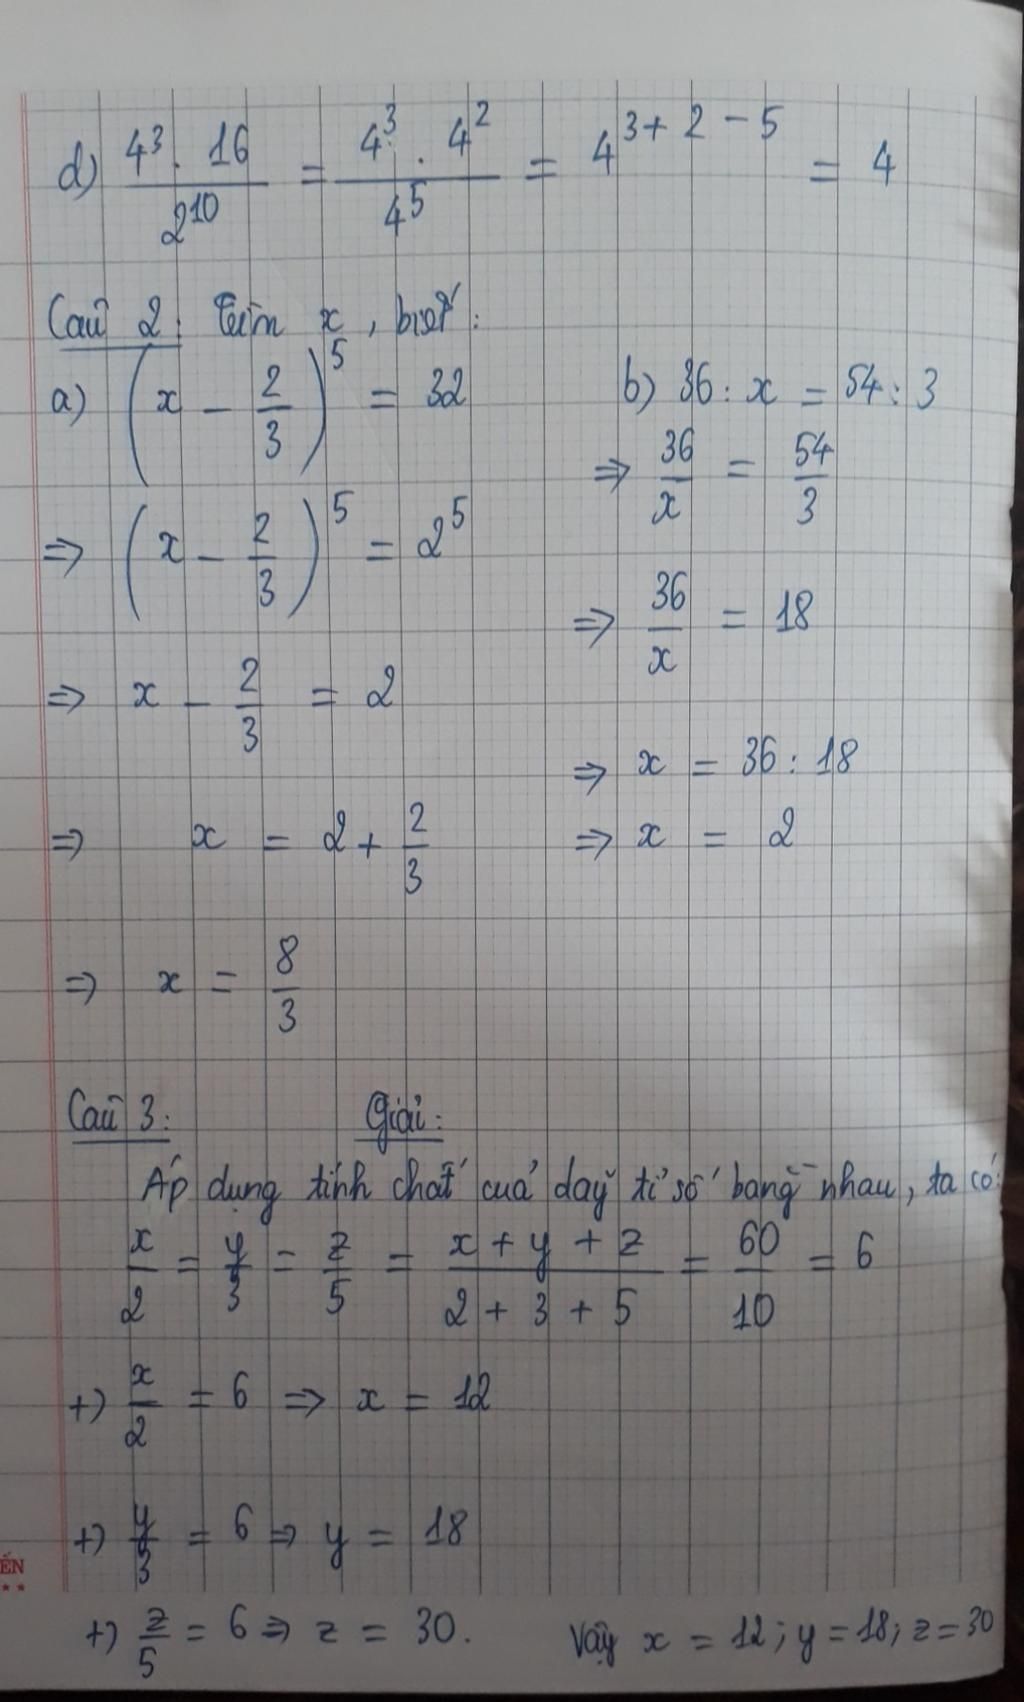 d) 4³ . 16 / 2¹⁰ = 4³ . 4² / 4⁵ = 4³⁺²⁻⁵ = 4
Câu 2: Tìm x, biết:
a) (x - 2/3)⁵ = 32
⇒ (x - 2/3)⁵ = 2⁵
⇒ x - 2/3 = 2
⇒ x = 2 + 2/3
⇒ x = 8/3
b) 36 : x = 54 : 3
⇒ 36/x = 54/3
⇒ 36/x = 18
⇒ x = 36 : 18
⇒ x = 2
Câu 3: Giải:
Áp dụng tính chất của dãy tỉ số bằng nhau, ta có:
x/2 = y/3 = z/5 = x + y + z / 2 + 3 + 5 = 60/10 = 6
+) x/2 = 6 ⇒ x = 12
+) y/3 = 6 ⇒ y = 18
+) z/5 = 6 ⇒ z = 30. Vậy x = 12; y = 18; z = 30
ẾN